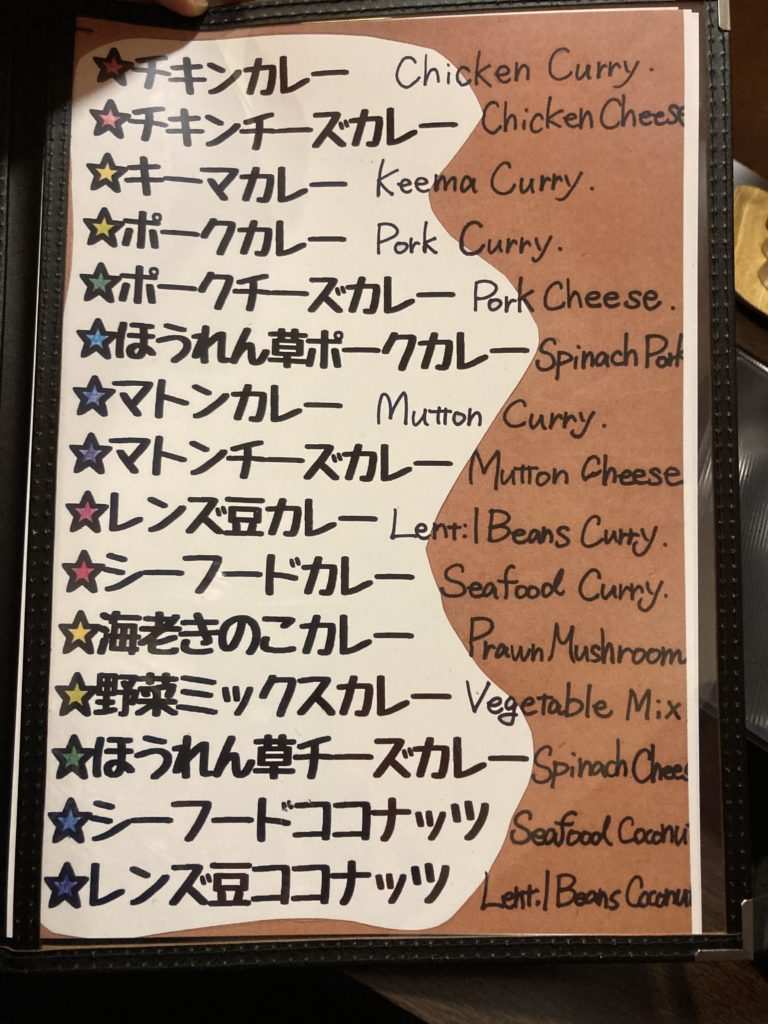 ★チキンカレー Chicken Curry.
★チキンチーズカレー Chicken Cheese
★キーマカレー Keema Curry.
★ポークカレー Pork Curry.
★ポークチーズカレー Pork Cheese.
★ほうれん草ポークカレー Spinach Pork
★マトンカレー Mutton Curry.
★マトンチーズカレー Mutton Cheese
★レンズ豆カレー Lentil Beans Curry.
★シーフードカレー Seafood Curry.
★海老きのこカレー Prawn Mushroom
★野菜ミックスカレー Vegetable Mix
★ほうれん草チーズカレー Spinach Chees
★シーフードココナッツ Seafood Coconu
★レンズ豆ココナッツ Lentil Beans Coconu